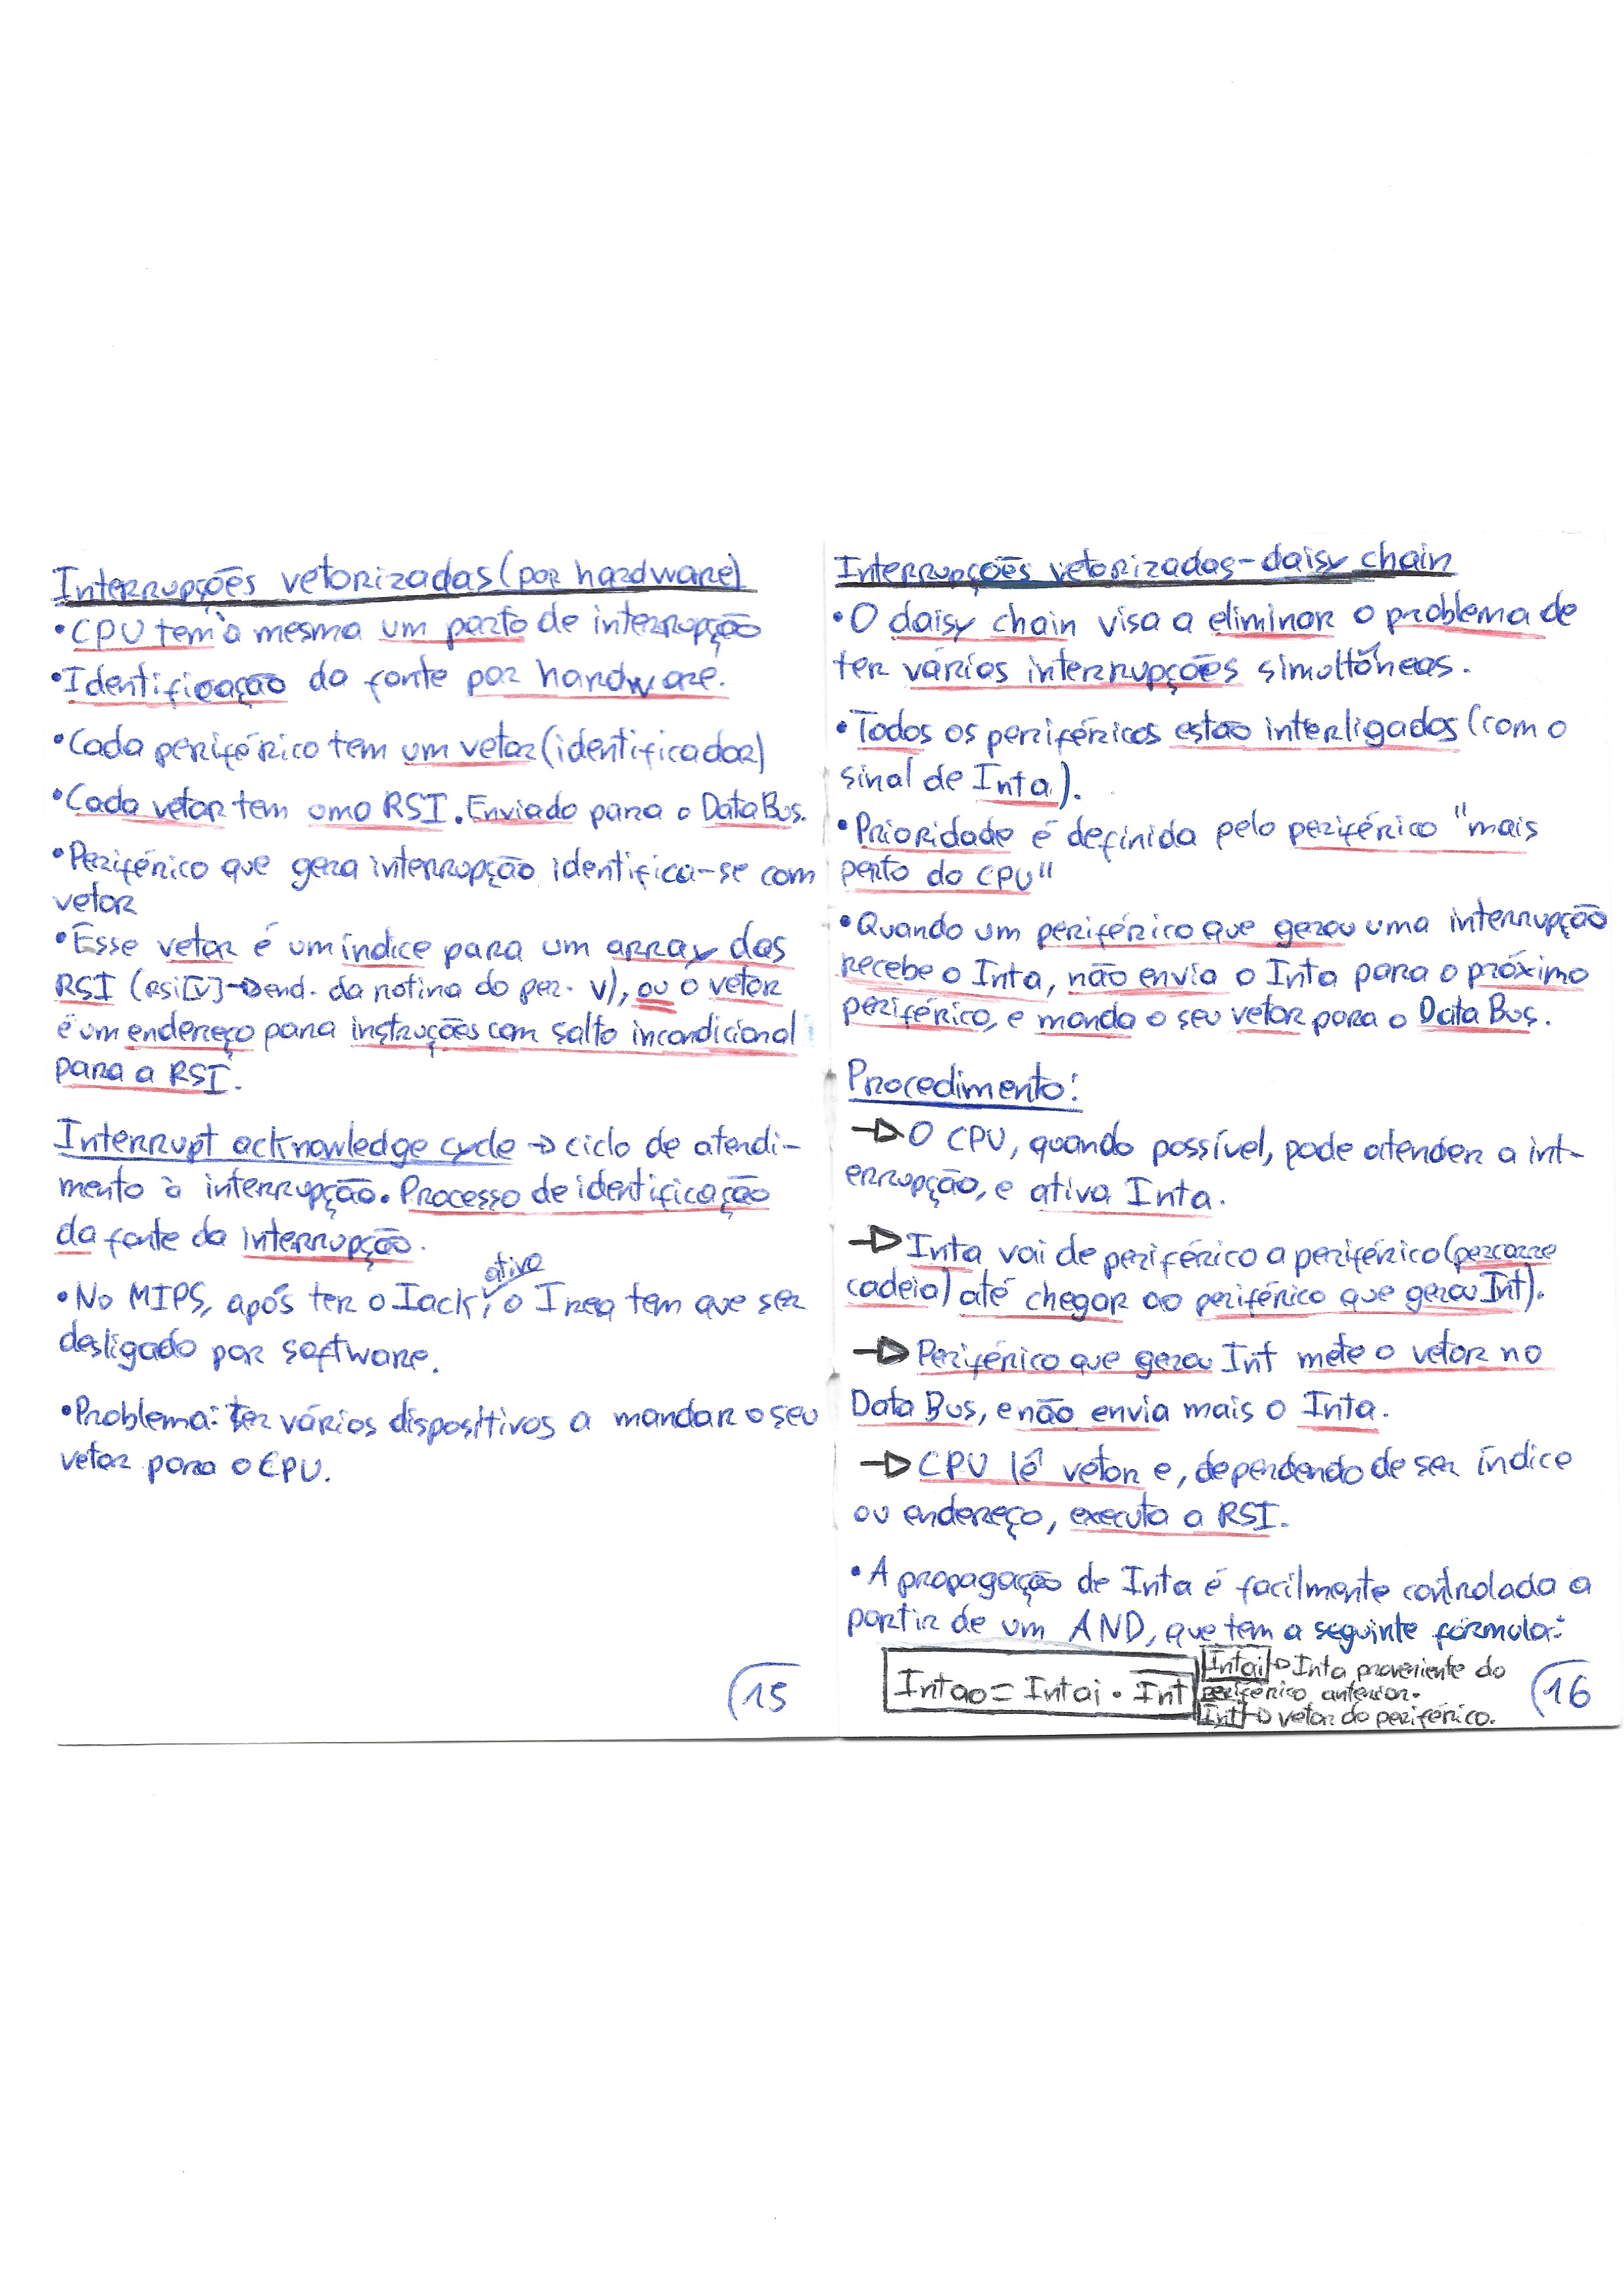 Interrupções vetorizadas (por hardware)
•CPU tem à mesma um porto de interrupção
•Identificação da fonte por hardware.
•Cada periférico tem um vetor (identificador)
•Cada vetor tem uma RSI. Enviado para o Data Bus.
•Periférico que gera interrupção identifica-se com
vetor
•Esse vetor é um índice para um array das
RSI (rsi[v]→end. da rotina do per. v), ou o vetor
é um endereço para instruções com salto incondicional
para a RSI.
Interrupt acknowledge cycle → ciclo de atendi-
mento à interrupção. Processo de identificação
da fonte da interrupção.
•No MIPS, após ter o Iack ativo, o Ireq tem que ser
desligado por software.
•Problema: ter vários dispositivos a mandar o seu
vetor para o CPU.
15
Interrupções vetorizadas-daisy chain
•O daisy chain visa a eliminar o problema de
ter várias interrupções simultâneas.
•Todos os periféricos estão interligados (com o
sinal de Inta).
•Prioridade é definida pelo periférico "mais
perto do CPU"
•Quando um periférico que gerou uma interrupção
recebe o Inta, não envia o Inta para o próximo
periférico, e manda o seu vetor para o Data Bus.
Procedimento:
→ O CPU, quando possível, pode atender a int-
errupção, e ativa Inta.
→ Inta vai de periférico a periférico (percorre
cadeia) até chegar ao periférico que gerou Int).
→ Periférico que gerou Int mete o vetor no
Data Bus, e não envia mais o Inta.
→ CPU lê vetor e, dependendo de ser índice
ou endereço, executa a RSI.
•A propagação de Inta é facilmente controlada a
partir de um AND, que tem a seguinte fórmula:
Intao = Intai · I̅n̅t̅
Intai → Inta proveniente do
periférico anterior.
Int → vetor do periférico.
16